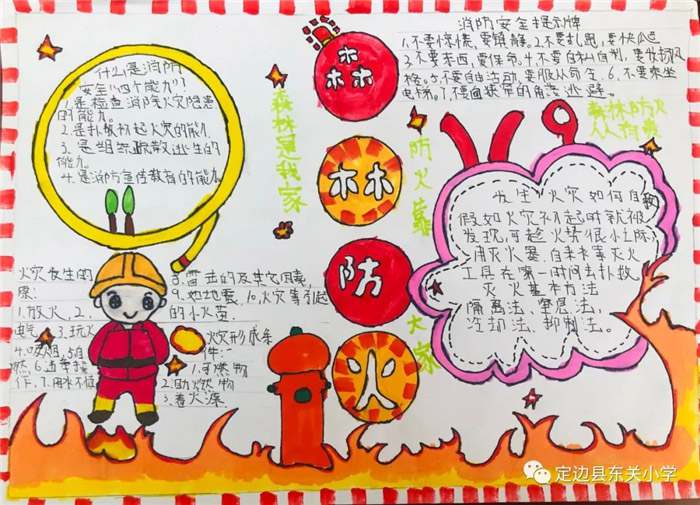 什么是消防
安全"四个能力"?
1.是检查消除火灾隐患
的能力。
2.是扑救初起火灾的能力
3.是组织疏散逃生的
能力
4.是消防宣传教育的能力
森林是我家
森
林
防
火
防火靠
大家
消防安全提示牌
1.不要惊慌,要镇静。2.不要乱跑,要快
3.不要
5.不要自由活动,要服从命令。6.不要乘坐
电梯。7.不要
森林防火
人人有责
119
发生火灾如何自救
假如火灾初起时就被
发现,可趁火势很小之际,
用灭火器、自来水等灭火
工具在第一时间去扑救
灭火基本方法
隔离法、窒息法、
冷却法、抑制法。
火灾发生的
1.放火、2.
电气、3.玩火
4.吸烟、5.自
燃、6.违章操
作、7.用火不
8.雷击的及其它因素,
9.如地震、10.火灾等引起
的小火
火灾形成条
件:
1.可燃物
2.助燃物
3.着火源
定边县东关小学